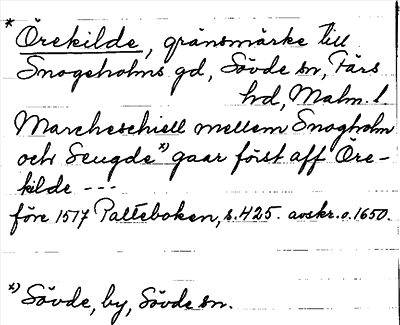 * Örekilde, gränsmärke till
Snogeholms gd, Sövde sn, Färs
hd, Malm. l.
Marcheschiell mellem Snogholm
och Seugde *) gaar först aff Öre-
kilde ---
före 1517 Palteboken, s. 425. avskr. o. 1650.
*) Sövde, by, Sövde sn.